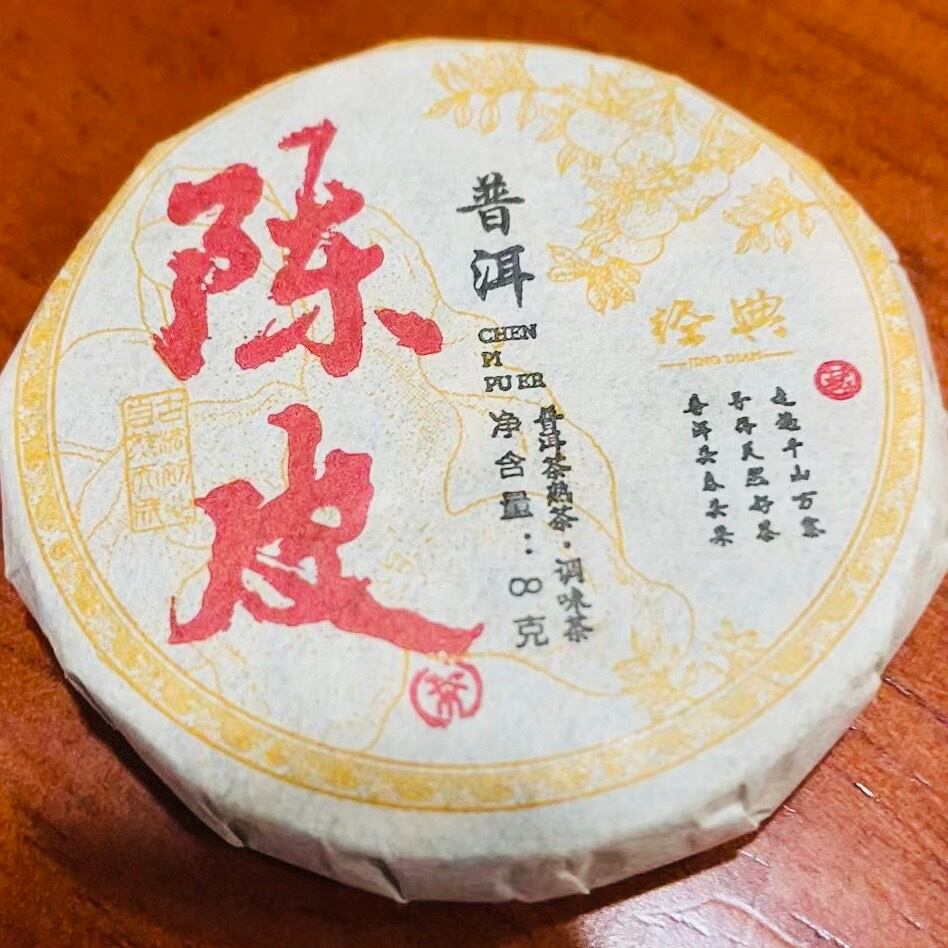 陈皮
普洱
CHEN
PI
PU ER
净含量：8克
普洱茶熟茶·调味茶
经典
JING DIAN
走遍千山万寨
寻得天然好茶
普洱头春头采
茶